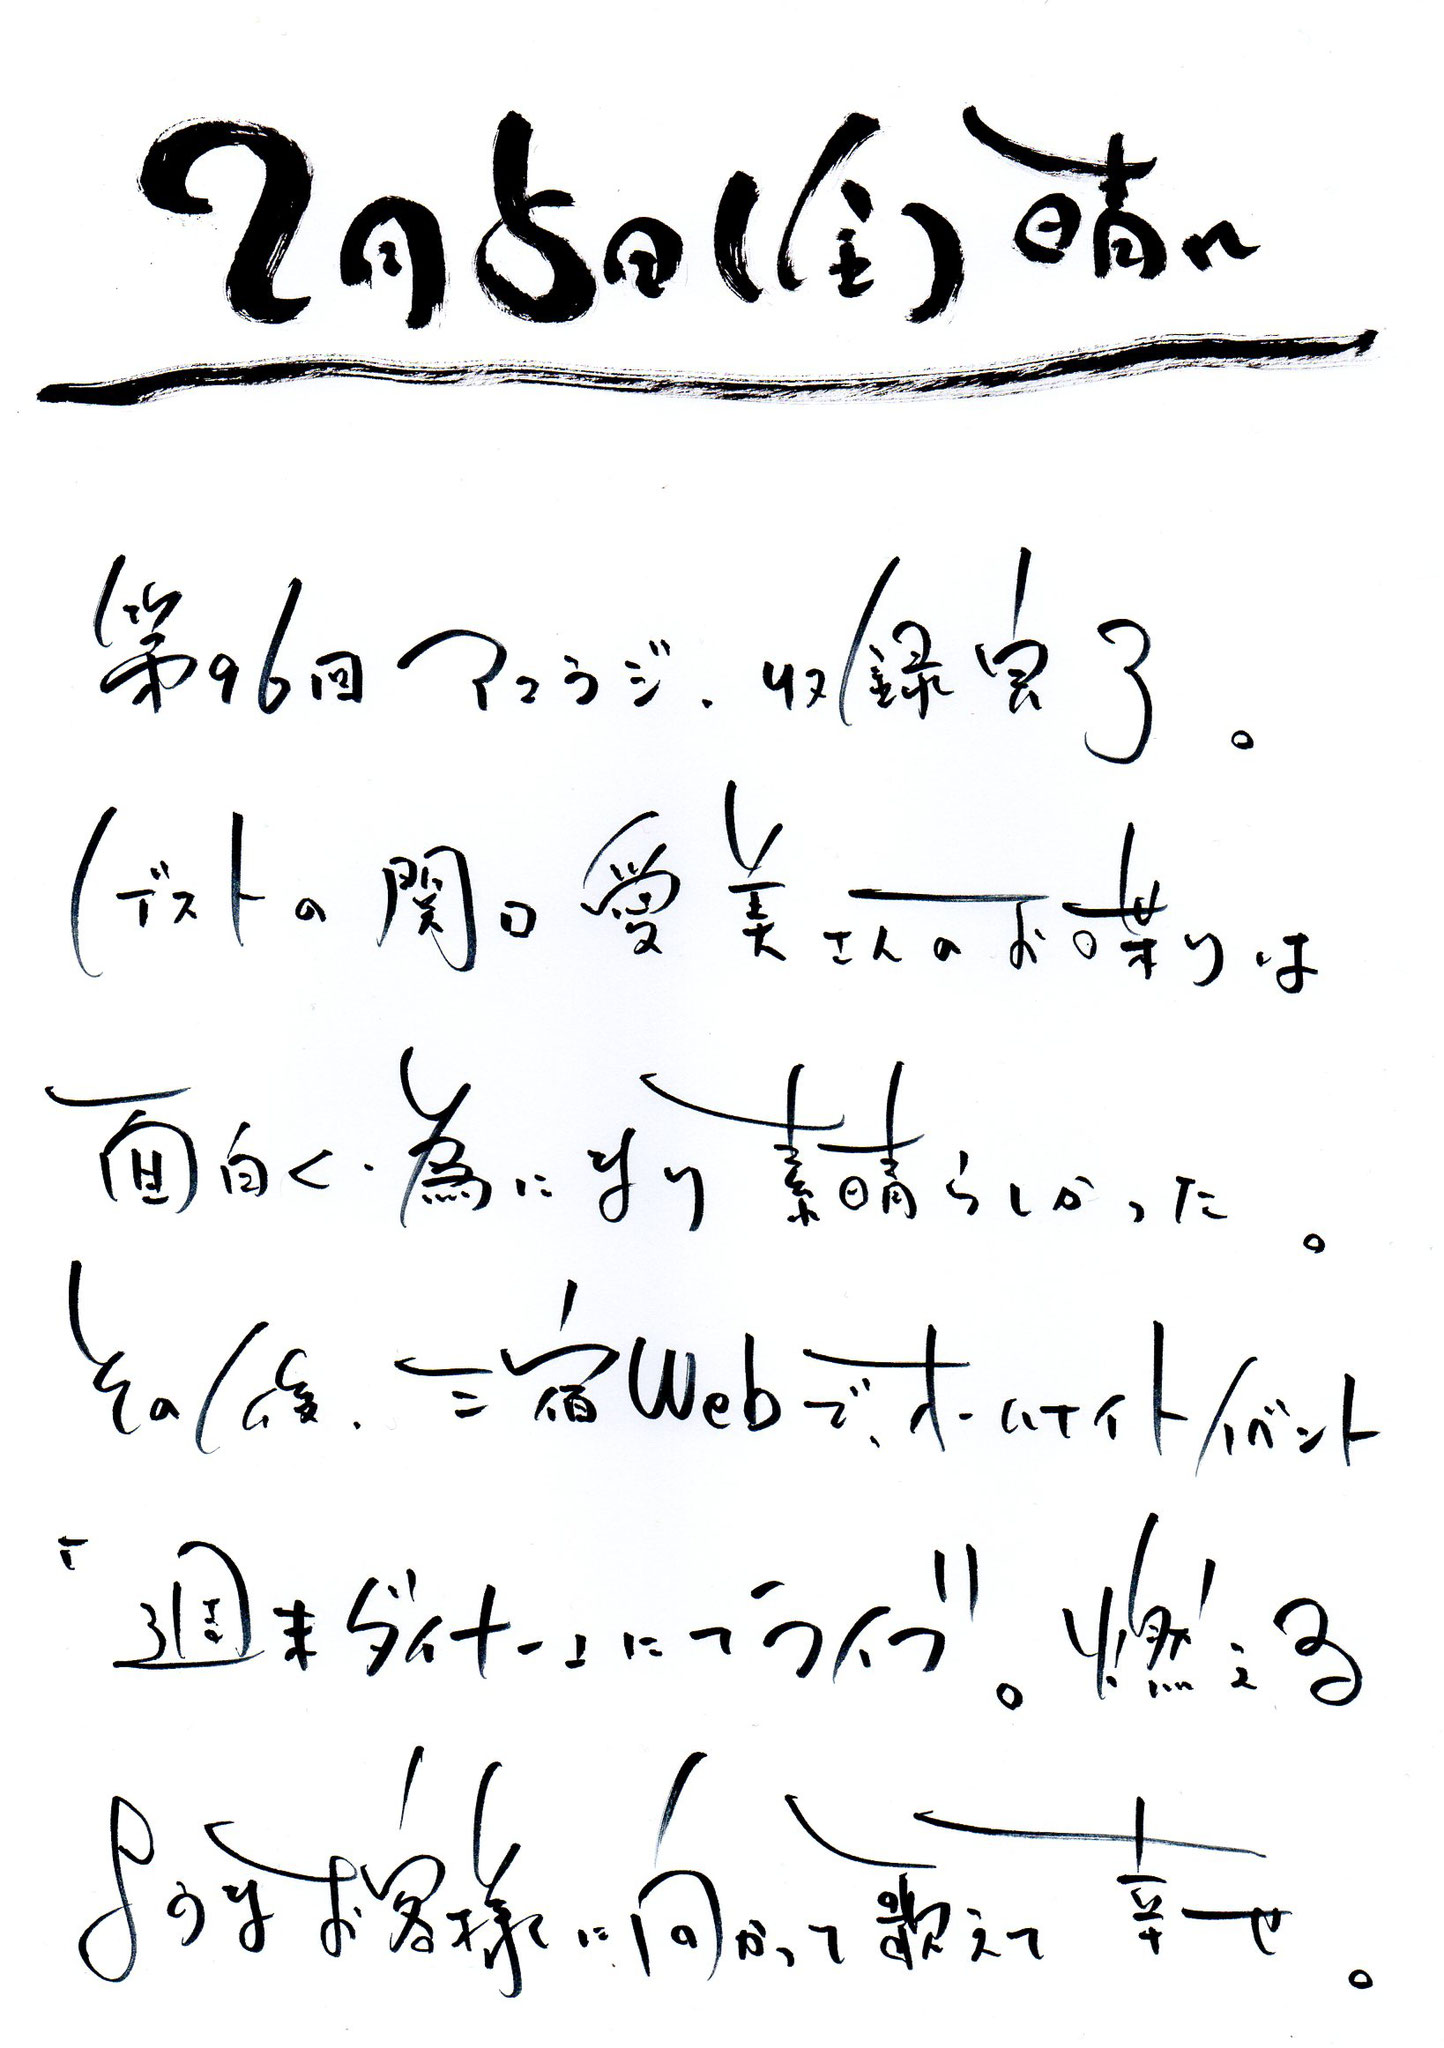 2月5日(金)晴れ
第96回アコラジ、収録完了。
(ゲストの関口愛美さんのお喋りは
面白く、為になり素晴らしかった。
その後、三宿Webで、オールナイトイベント
「週末ダイナー」にてライブ。燃える
ようなお客様に向かって歌えて幸せ。